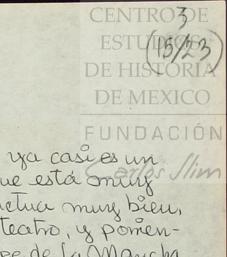 CENTRO DE
3
ESTUDIOS
(15/23)
DE HISTORIA
DE MEXICO
FUNDACIÓN
Carlos Slim
ya casi es un
ue está muy
ctua muy bien,
teatro, y ponen-
pe de La Mancha